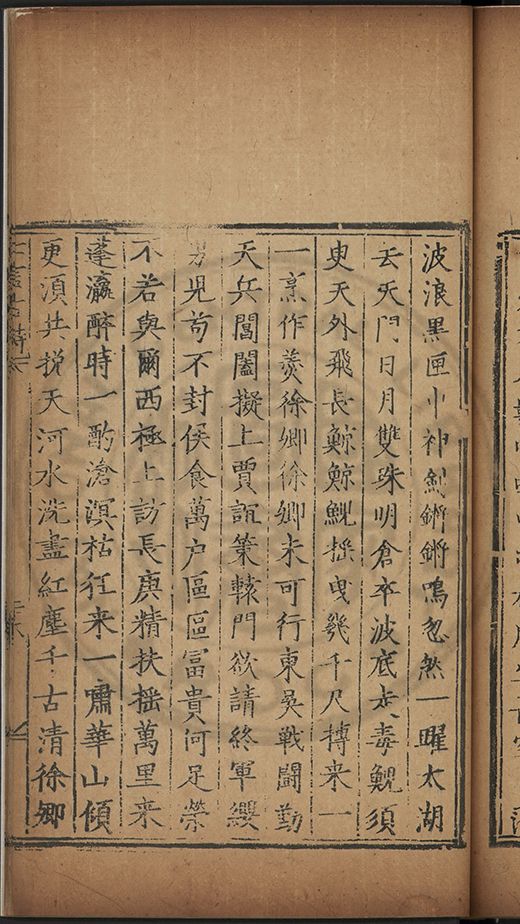 波浪黑匣中神劍鏘鏘鳴忽然一曜太湖
去天門日月雙珠明倉卒波底走毒鯢須
臾天外飛長鯨鯨鯢搖曳幾千尺摶来一
一烹作羮徐卿徐卿未可行東吳戰鬪勤
天兵閶闔擬上賈誼策轅門欲請終軍纓
男兒茍不封侯食萬户區區富貴何足榮
不若與爾西極上訪長庚精扶搖萬里来
蓬瀛醉時一酌滄溟枯狂来一嘯華山傾
更湏共挽天河水洗盡紅塵千古清徐卿